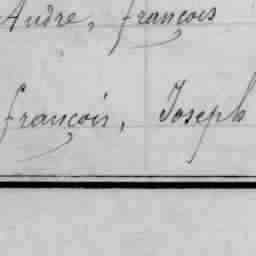 Andre, françois
françois, Joseph